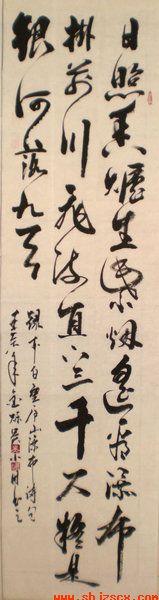 日照香炉生紫烟遥看瀑布
挂前川飞流直下三千尺疑是
银河落九天
录李白望庐山瀑布一诗句
www.shjzscx.com